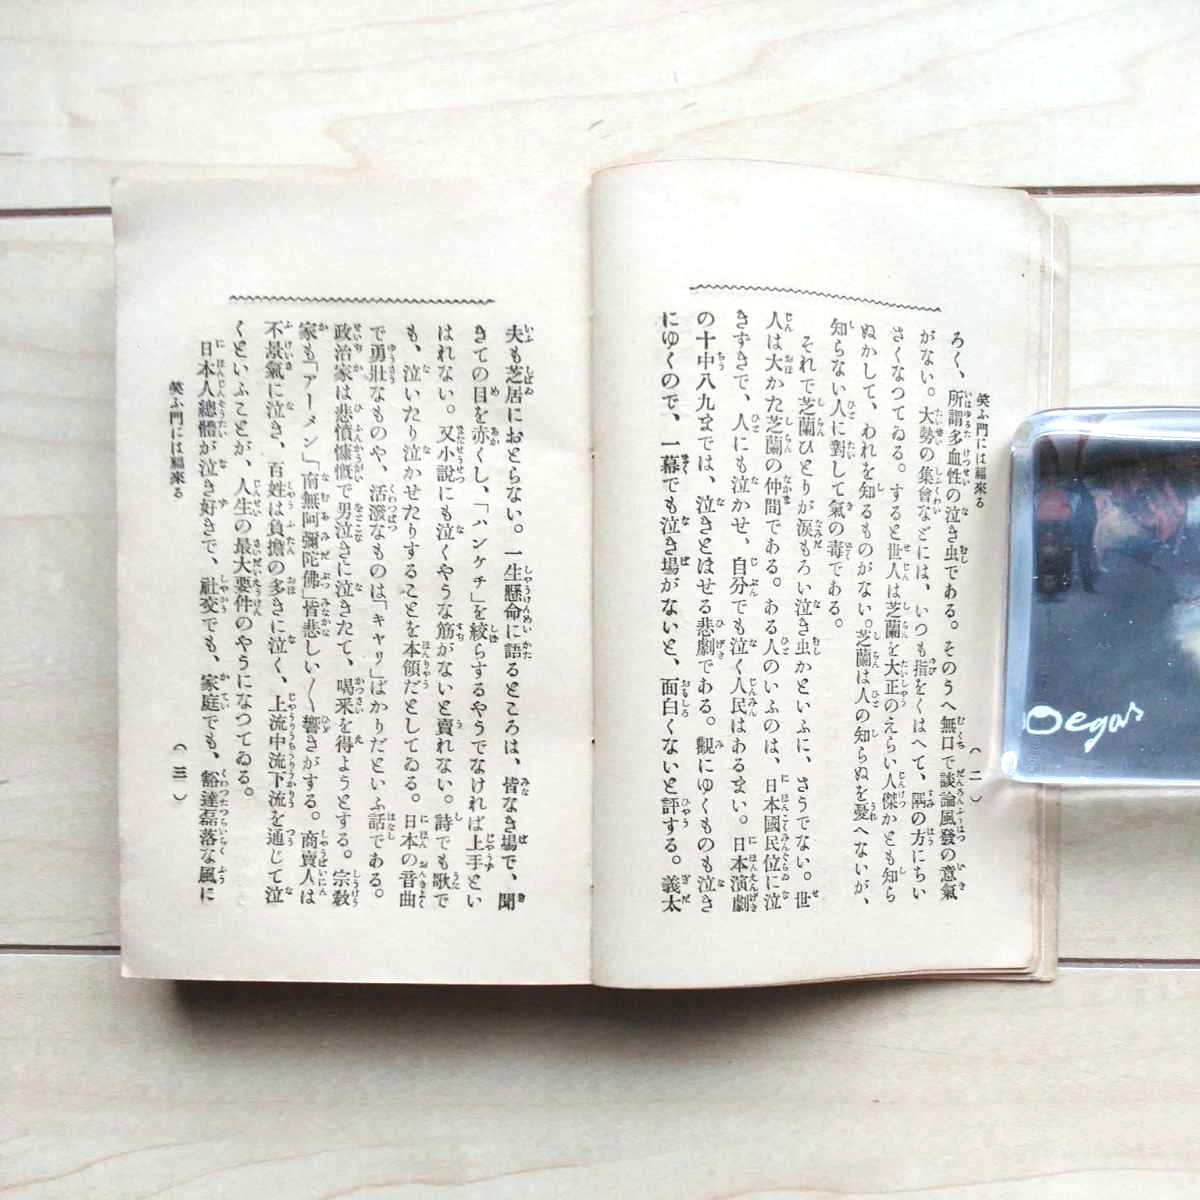 笑ふ門には福來る
(二)
ろく、所謂多血性の泣き虫である。そのうへ無口で談論風發の意氣
がない。大勢の集會などには、いつも指をくはへて、隅の方にちい
さくなつてゐる。すると世人は芝蘭を大正のえらい人傑かとも知ら
ぬかして、われを知るものがない。芝蘭は人の知らぬを憂へないが、
知らない人に對して氣の毒である。
それで芝蘭ひとりが涙もろい泣き虫かといふに、さうでない。世
人は大かた芝蘭の仲間である。ある人のいふのは、日本國民位に泣
きずきで、人にも泣かせ、自分でも泣く人民はあるまい。日本演劇
の十中八九までは、泣きとはせる悲劇である。觀にゆくものも泣き
にゆくので、一幕でも泣き場がないと、面白くないと評する。義太
夫も芝居におとらない。一生懸命に語るところは、皆なき場で、聞
きての目を赤くし、「ハンケチ」を絞らするやうでなければ上手とい
はれない。又小説にも泣くやうな筋がないと賣れない。詩でも歌で
も、泣いたり泣かせたりすることを本領だとしてゐる。日本の音曲
で勇壯なものや、活潑なものは「キャリ」ばかりだといふ話である。
政治家は悲憤慷慨で男泣きに泣きたて、喝采を得ようとする。宗教
家も「アーメン」「南無阿彌陀佛」皆悲しい〱響きがする。商賣人は
不景氣に泣き、百姓は負擔の多きに泣く、上流中流下流を通じて泣
くといふことが、人生の最大要件のやうになつてゐる。
日本人總體が泣き好きで、社交でも、家庭でも、豁達磊落な風に
笑ふ門には福來る
(三)
Degas